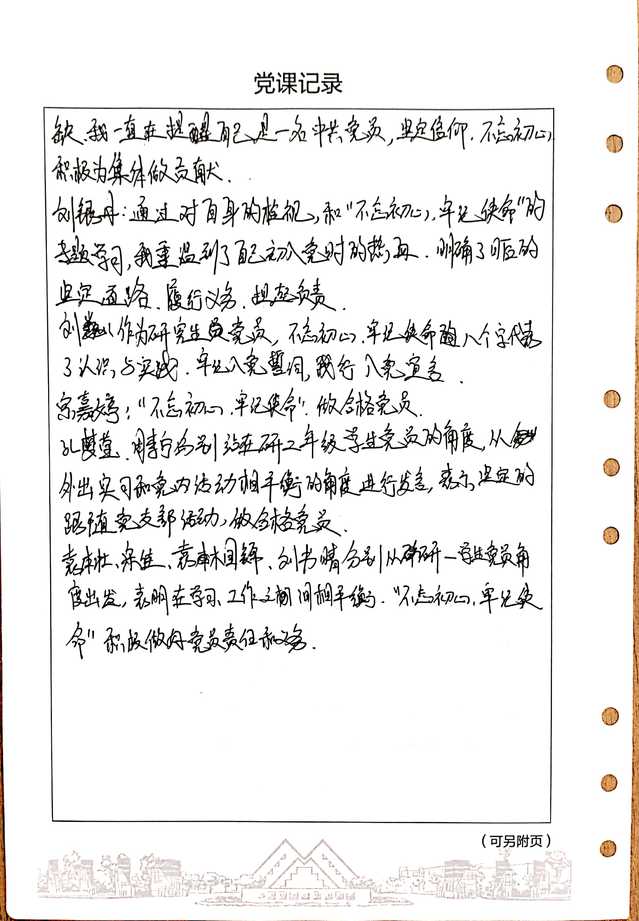 党课记录
缺、我一直在提醒自己是一名中共党员，坚定信仰．不忘初心
积极为集体做贡献．
刘银丹：通过对自身的检视，和“不忘初心，牢记使命”的
专题学习，我重温到了自己初入党时的热血．明确了日后的
坚定道路．履行义务．担起负责
刘 作为研究生党员，不忘初心．牢记使命 八个字代表
了认识与实践．牢记入党誓词，践行入党宣言．
宗嘉婷：“不忘初心．牢记使命”．做合格党员．
孔 分别站在研二年级学生党员的角度，从
外出实习和党内活动相平衡的角度进行发言，表示坚定的
跟随党支部活动，做合格党员．
宋佳、 、刘书晴分别从研一学生党员角
度出发，表明在学习、工作之间相平衡．“不忘初心，牢记使
命”积极做好党员责任和义务．
（可另附页）